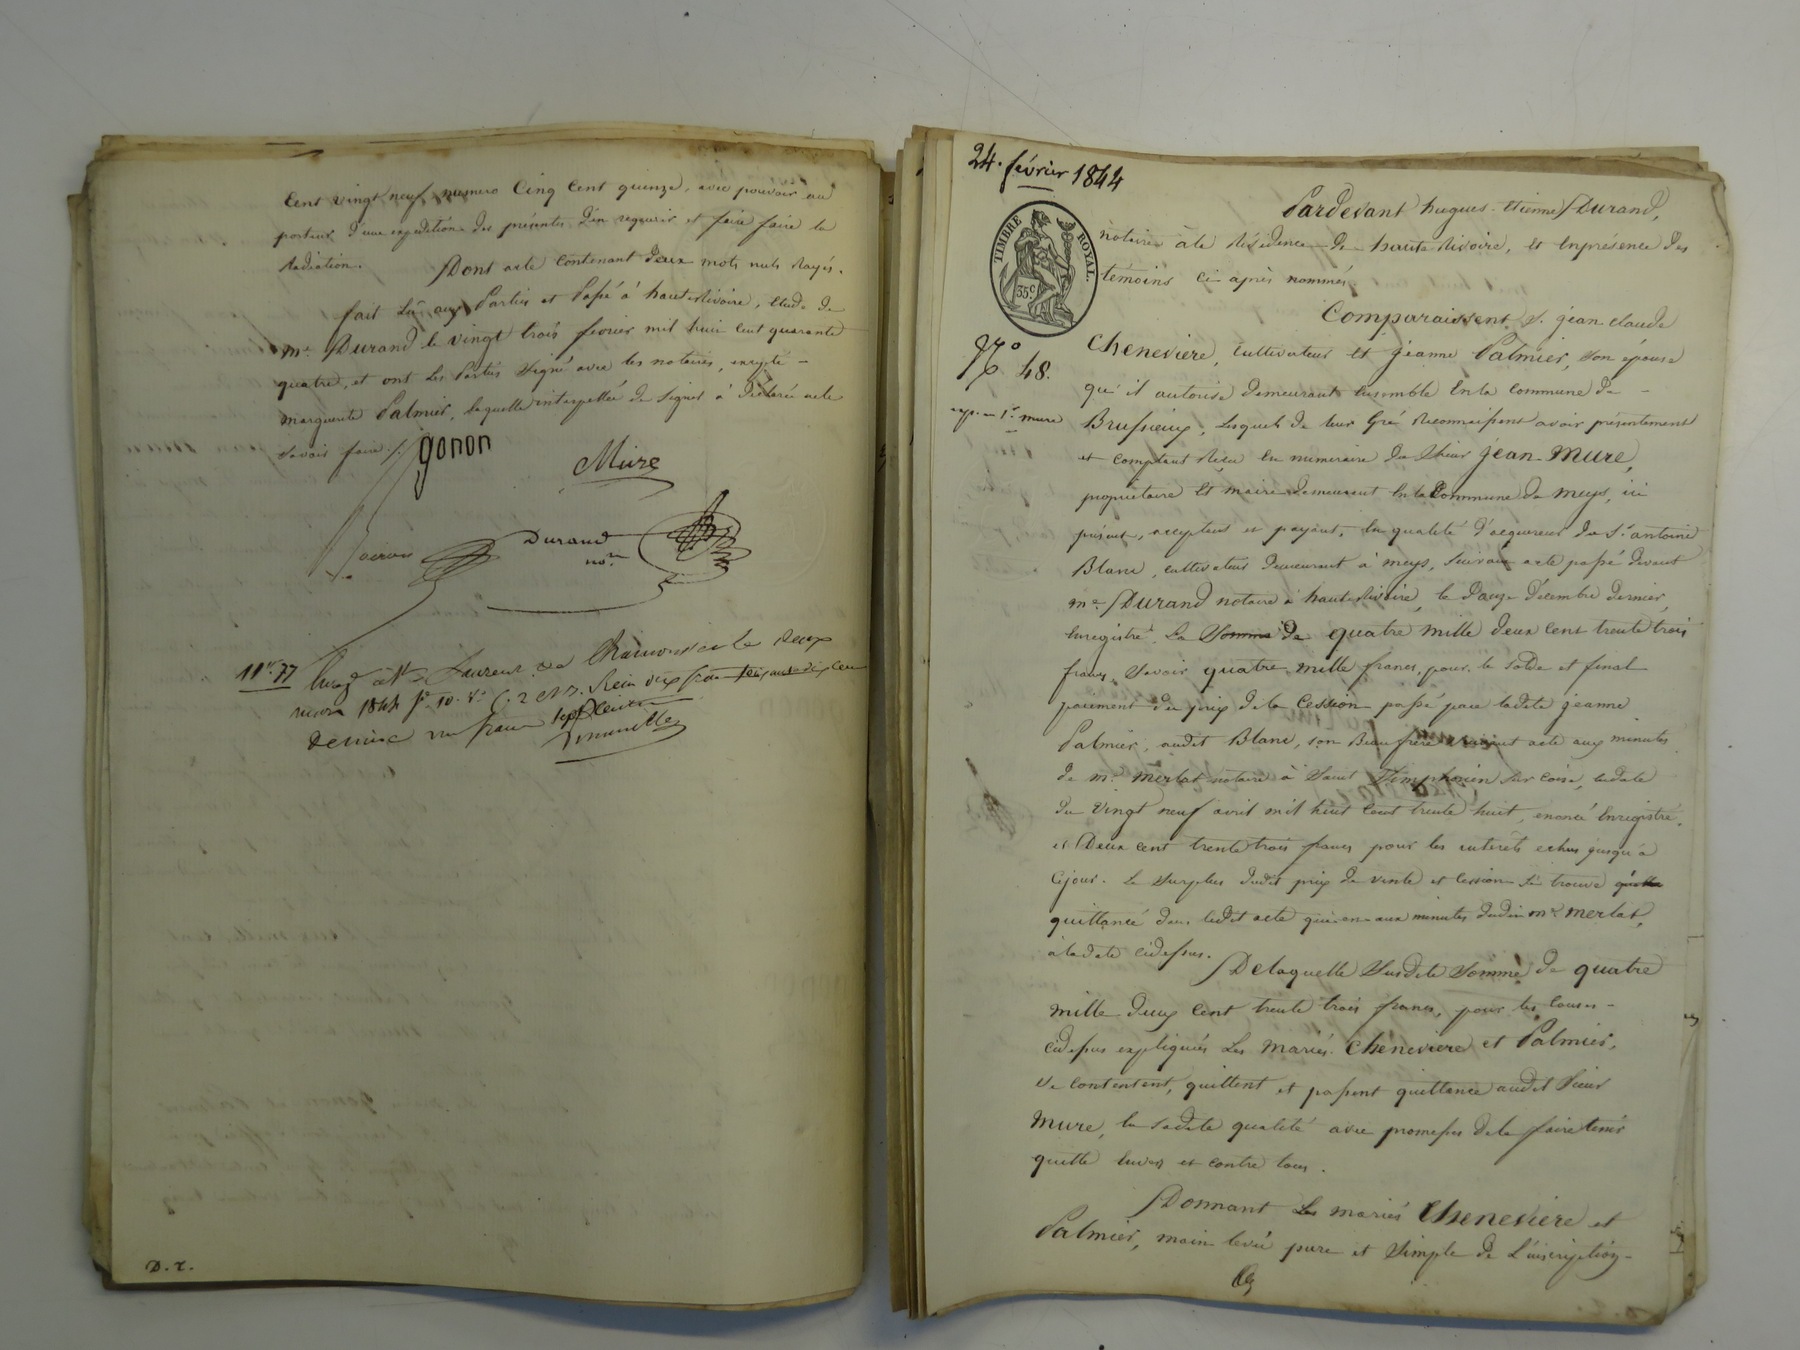 Cent vingt neuf, numero Cinq Cent quinze, avec pouvoir au
porteur d'une expedition des présentes d'en requerir et faire faire la
Radiation. Dont acte contenant deux mots nuls Rayés.
fait Lû aux Parties et Passé à haute Rivoire, Etude de
me. Durand le vingt trois fevrier mil huit cent quarante
quatre, et ont les Parties signé avec les notaires, excepté -
marguerite Palmier, laquelle interpellée de signer à déclaré ne le
savoir faire ./.
gonon
Mure
Durand
nore.
11f. 77
Enregé à St Laurent de Chamousset le deux
mars 1844 fo. 10. Vo. C. 2 Reçu dix francs
decime un franc
D. r.
24. février 1844
TIMBRE ROYAL.
35c
No 48.
exp. en 1r. mure
Pardevant hugues-Etienne Durand,
notaire à la Résidence de haute Rivoire, et en présence des
témoins ci après nommés.
Comparaissent S. jean claude
Chenevière, cultivateur et jeanne Palmier, son épouse
qu'il autorise demeurant ensemble en la commune de -
Brussieux, lesquels de leur Gré Reconnaissent avoir présentement
et comptant Reçu en numeraire du Sieur jean Mure,
propriétaire et maire demeurant en la Commune de meys, ici
présent, acceptant et payant, en qualité d'acquereur du Sr. antoine
Blanc, cultivateur demeurant à meys, suivant acte passé devant
me. Durand notaire à haute Rivoire, le douze Décembre dernier,
Enregistré. La Somme de quatre mille deux cent trente trois
francs, Savoir quatre mille francs, pour le solde et final
paiement du prix de la Cession passé par ladite jeanne
Palmier, audit Blanc, son Beau frère suivant acte aux minutes
de me. merlat notaire à Saint Simphorien sur coise, en date
du Vingt neuf avril mil huit cent trente huit, enoncé Enregistré.
et Deux cent trente trois francs pour les interêts echus jusqu'à
Cejour. Le Surplus dudit prix de vente et cession se trouve quitta
quittancé dans ledit acte qui en aux minutes dudit me. merlat,
à la date cidessus.
De laquelle Susdite Somme de quatre
mille deux cent trente trois francs, pour les causes -
cidessus expliquées Les mariés Cheneviere et Palmier,
se contentent, quittent et passent quittance audit Sieur
Mure, en sadite qualité avec promesses de le faire tenir
quitte envers et contre tous.
Donnant Les mariés Cheneviere et
Palmier, main levée pure et simple de L'inscription -